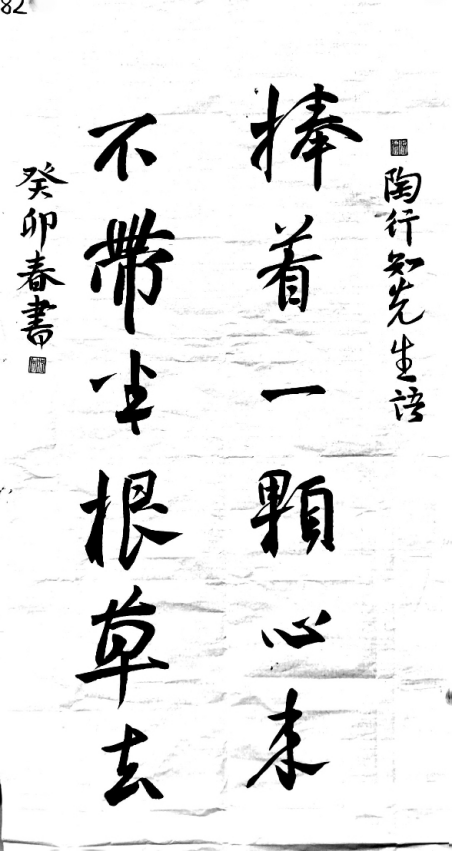 陶行知先生语
捧着一顆心来
不帶半根草去
癸卯春書
82